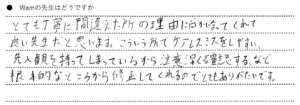 ● Wamの先生はどうですか
とても丁寧に間違えた所の理由に向かい合ってくれて
良い先生だと思います。こういう所でケアレスミスをしやすい、
先入観を持ってしまっているから注意深く音読する、など
根本的なところから修正してくれるのでとてもありがたいです。